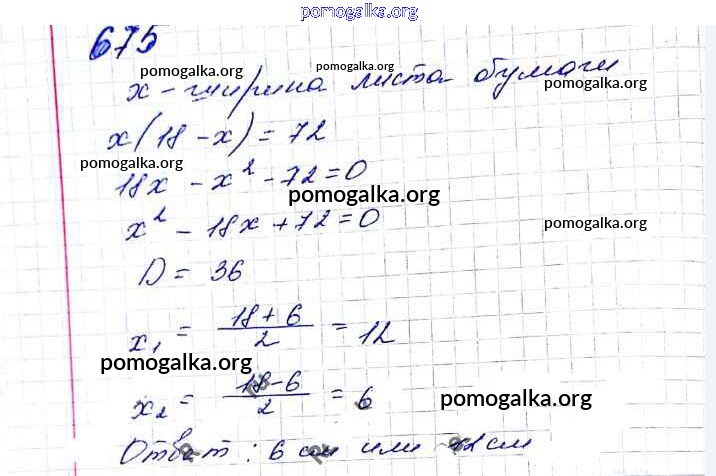 pomogalka.org
675
pomogalka.org
pomogalka.org
x - ширина листа бумаги
x(18 - x) = 72
pomogalka.org
18x - x² - 72 = 0
pomogalka.org
x² - 18x + 72 = 0
pomogalka.org
D = 36
x₁ = (18 + 6)/2 = 12
pomogalka.org
x₂ = (18 - 6)/2 = 6
pomogalka.org
Ответ: 6 см или 12 см